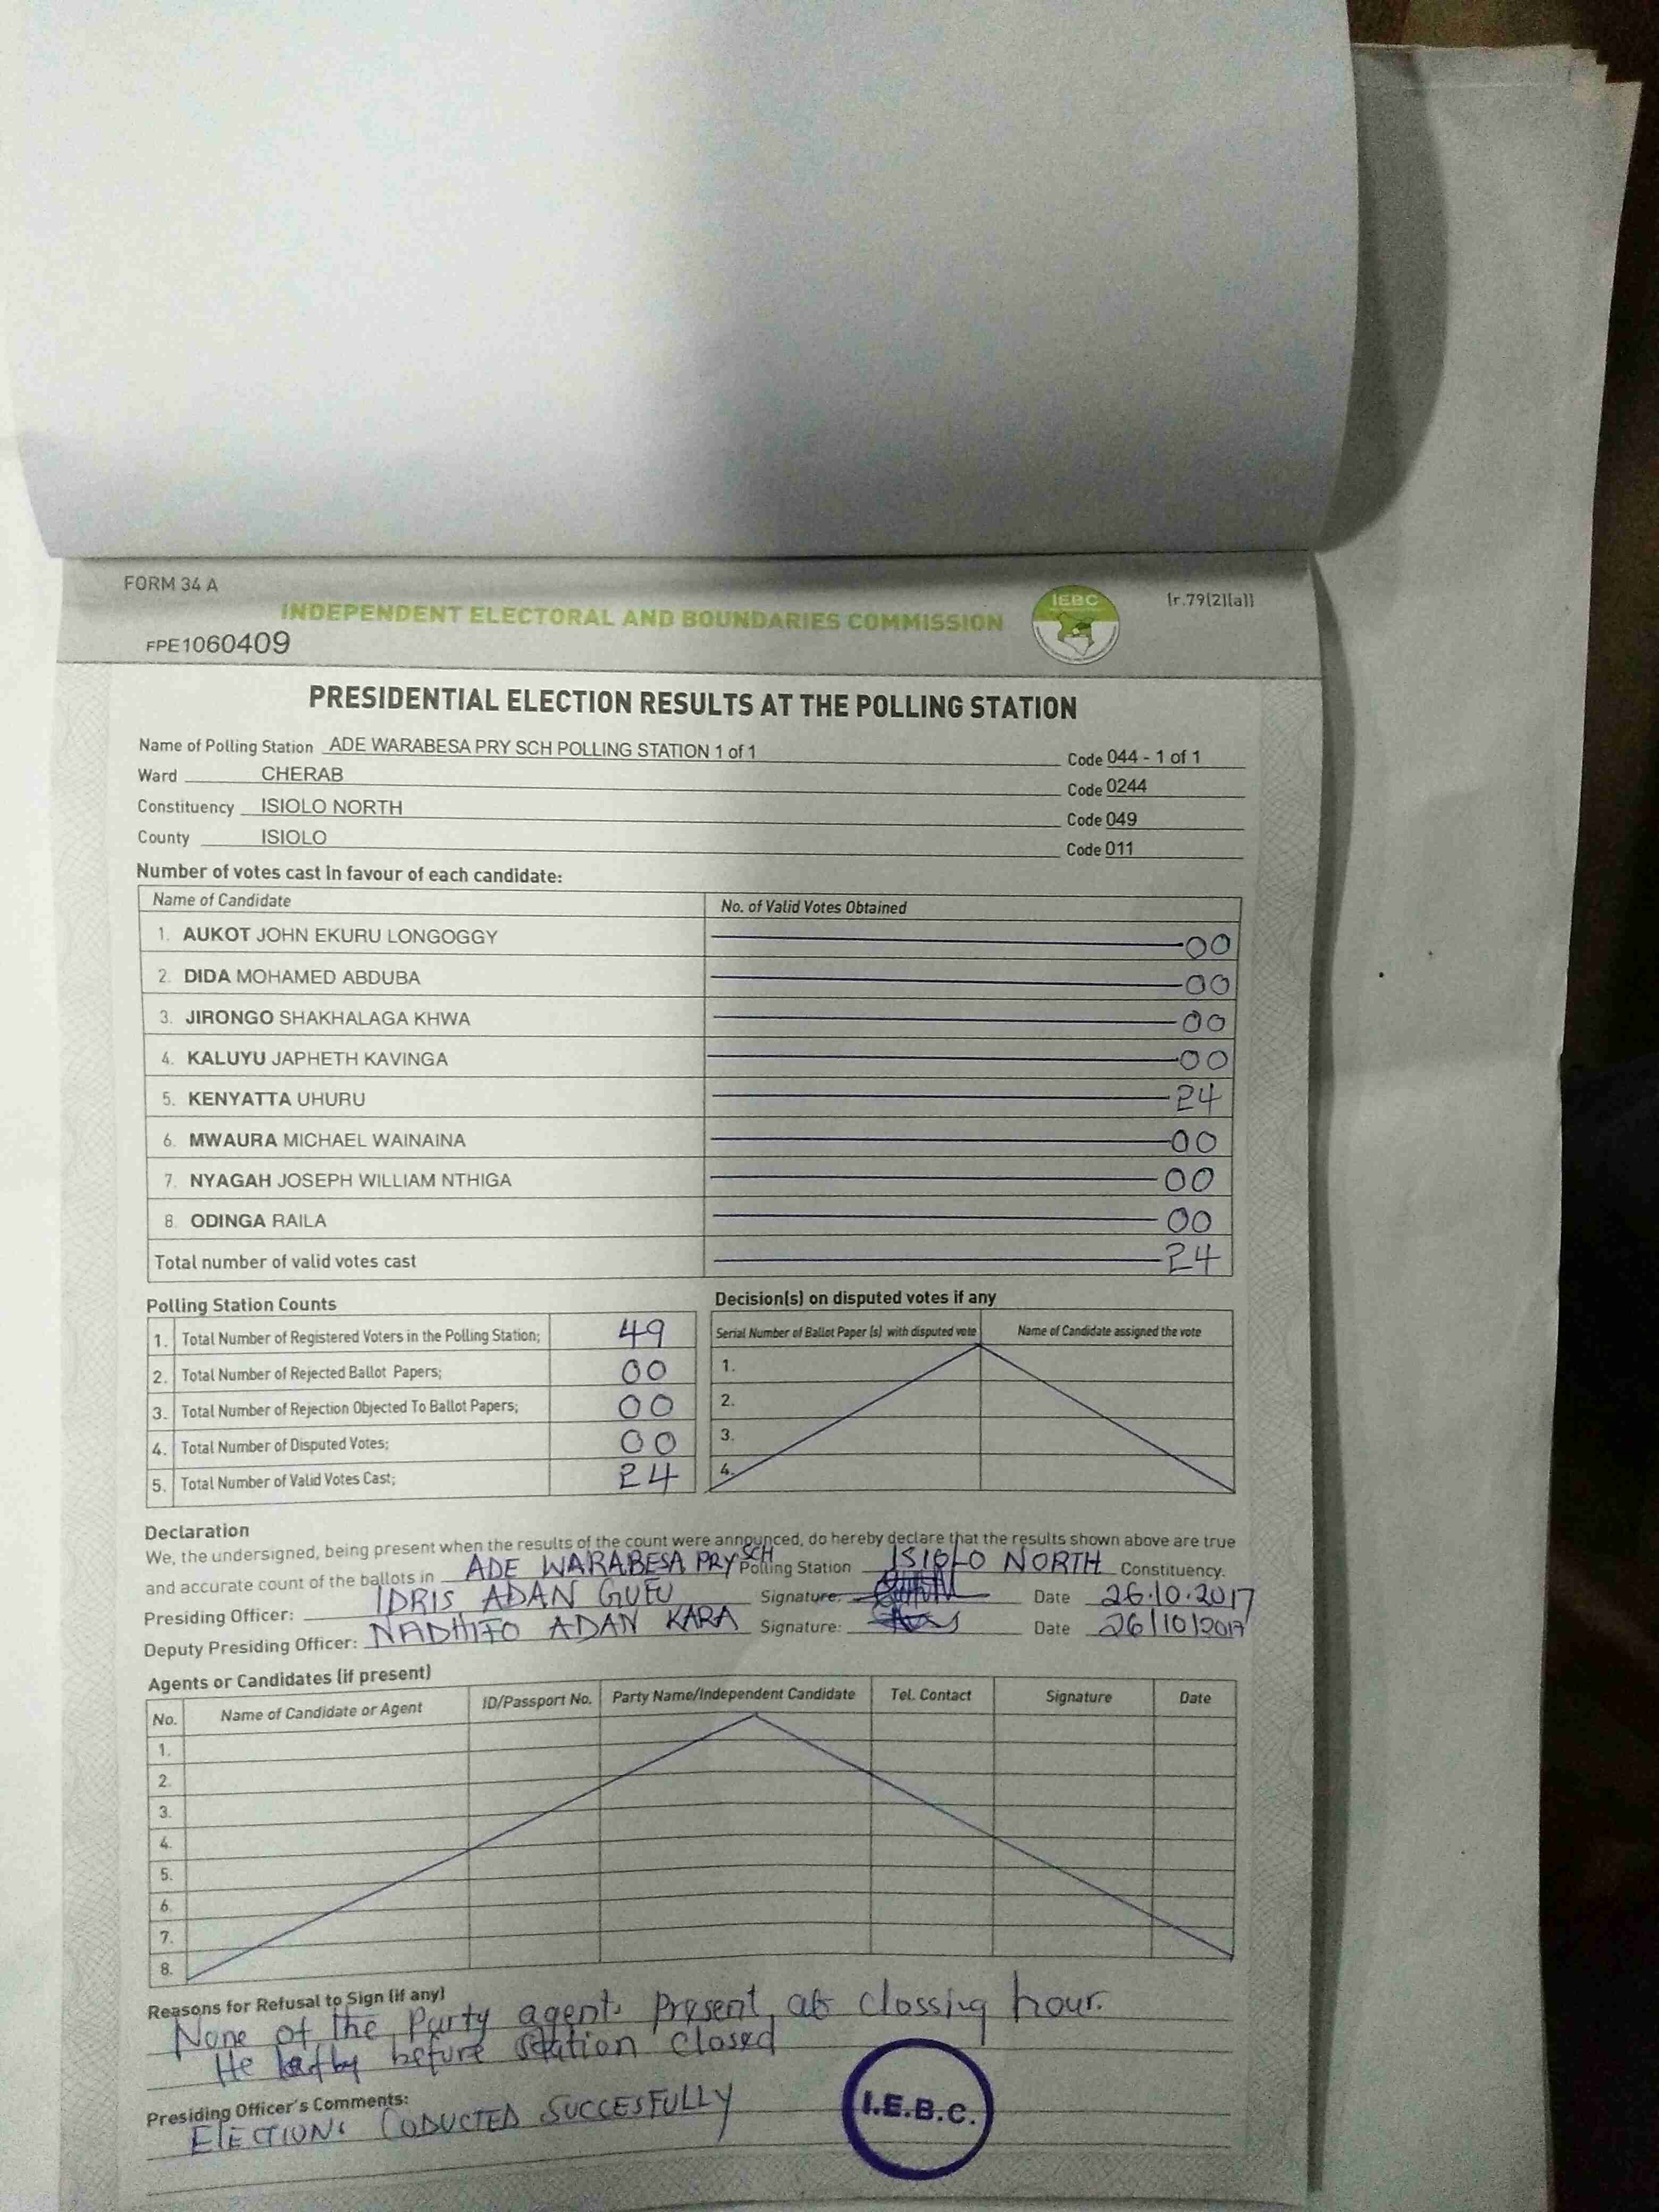 FORM 34 A
INDEPENDENT ELECTORAL AND BOUNDARIES COMMISSION
IEBC
(r.79(2)(a))
FPE1060409
PRESIDENTIAL ELECTION RESULTS AT THE POLLING STATION
Name of Polling Station ADE WARABESA PRY SCH POLLING STATION 1 of 1 Code 044 - 1 of 1
Ward CHERAB Code 0244
Constituency ISIOLO NORTH Code 049
County ISIOLO Code 011
Number of votes cast in favour of each candidate:
Name of Candidate No. of Valid Votes Obtained
1. AUKOT JOHN EKURU LONGOGGY 00
2. DIDA MOHAMED ABDUBA 00
3. JIRONGO SHAKHALAGA KHWA 00
4. KALUYU JAPHETH KAVINGA 00
5. KENYATTA UHURU 24
6. MWAURA MICHAEL WAINAINA 00
7. NYAGAH JOSEPH WILLIAM NTHIGA 00
8. ODINGA RAILA 00
Total number of valid votes cast 24
Polling Station Counts
1. Total Number of Registered Voters in the Polling Station; 49
2. Total Number of Rejected Ballot Papers; 00
3. Total Number of Rejection Objected To Ballot Papers; 00
4. Total Number of Disputed Votes; 00
5. Total Number of Valid Votes Cast; 24
Decision(s) on disputed votes if any
Serial Number of Ballot Paper (s) with disputed vote Name of Candidate assigned the vote
1.
2.
3.
4.
Declaration
We, the undersigned, being present when the results of the count were announced, do hereby declare that the results shown above are true
and accurate count of the ballots in ADE WARABESA PRY SCH Polling Station ISIOLO NORTH Constituency.
Presiding Officer: IDRIS ADAN GUFU Signature: Date 26.10.2017
Deputy Presiding Officer: NADHIFO ADAN KARA Signature: Date 26/10/2017
Agents or Candidates (if present)
No. Name of Candidate or Agent ID/Passport No. Party Name/Independent Candidate Tel. Contact Signature Date
1.
2.
3.
4.
5.
6.
7.
8.
Reasons for Refusal to Sign (if any)
None of the Party agents Present at clossing hour.
He before station closed
Presiding Officer's Comments:
ELECTIONS CODUCTED SUCCESFULLY
I.E.B.C.